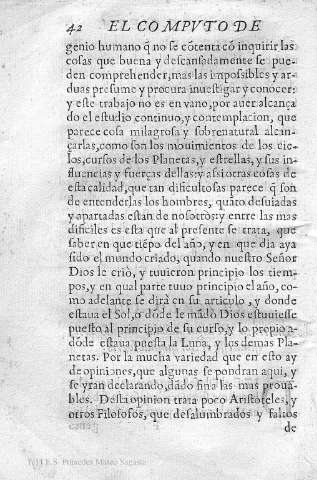 42 EL COMPVTO DE
genio humano q̃ no ſe cõtenta cõ inquirir las
coſas que buena y deſcanſadamente ſe pue-
den comprehender, mas las impoſsibles y ar-
duas preſume y procura inueſtigar y conocer:
y eſte trabajo no es en vano, por auer alcança
do el eſtudio continuo, y contemplacion, que
parece coſa milagroſa y ſobrenatural alcan-
çarlas, como ſon los mouimientos de los cie-
los, curſos de los Planetas, y eſtrellas, y ſus in-
fluencias y fuerças dellas: y aſsi otras coſas de
eſta calidad, que tan dificultoſas parece q̃ ſon
de entenderlas los hombres, quãto deſuiadas
y apartadas eſtan de noſotros: y entre las mas
dificiles es eſta que al preſente ſe trata, que
ſaber en que tiẽpo del año, y en que dia aya
ſido el mundo criado, quando nueſtro Señor
Dios le criò, y tuuieron principio los tiem-
pos, y en qual parte tuuo principio el año, co-
mo adelante ſe dirà en ſu articulo, y donde
eſtaua el Sol, o dõde le mãdò Dios eſtuuieſſe
pueſto al principio de ſu curſo, y lo propio a-
dõde eſtaua pueſta la Luna, y los demas Pla-
netas. Por la mucha variedad que en eſto ay
de opiniones, que algunas ſe pondran aqui, y
ſe yran declarando, dãdo fino las mas proua-
bles. Deſta opinion trata poco Ariſtoteles, y
otros Filoſofos, que deſalumbrados y faltos
de
I.E.S. Práxedes Mateo Sagasta